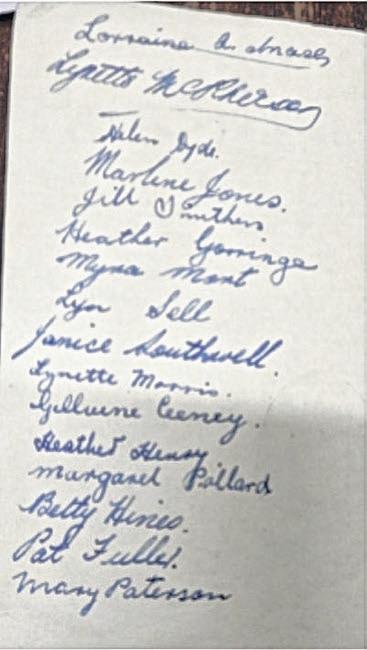 Lorraine A.
Lynette McPherson
Helen Dyde.
Marlene Jones.
Jill Smithers
Heather Gorringe
Myra Mont
Lyn Sell
Janice Southwell.
Lynette Morris.
Ceeney.
Heather Henry
Margaret Pollard
Betty Hines.
Pat Fuller.
Mary Paterson